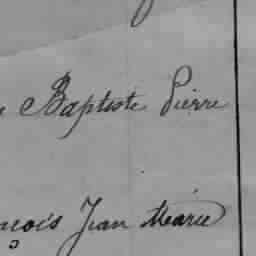 Baptiste Pierre
nçois Jean Marie